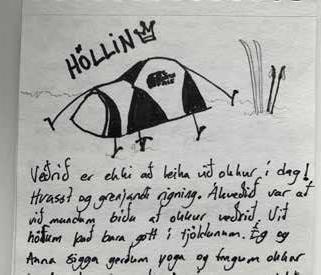 HÖLLIN
Veðrið er ekki að leika við okkur í dag!
Hvasst og grenjandi rigning. Ákveðið var að
við mundum bíða af okkur veðrið. Við
höfum það bara gott í tjöldunum. Ég og
Anna Sigga gerðum yoga og fengum okkur